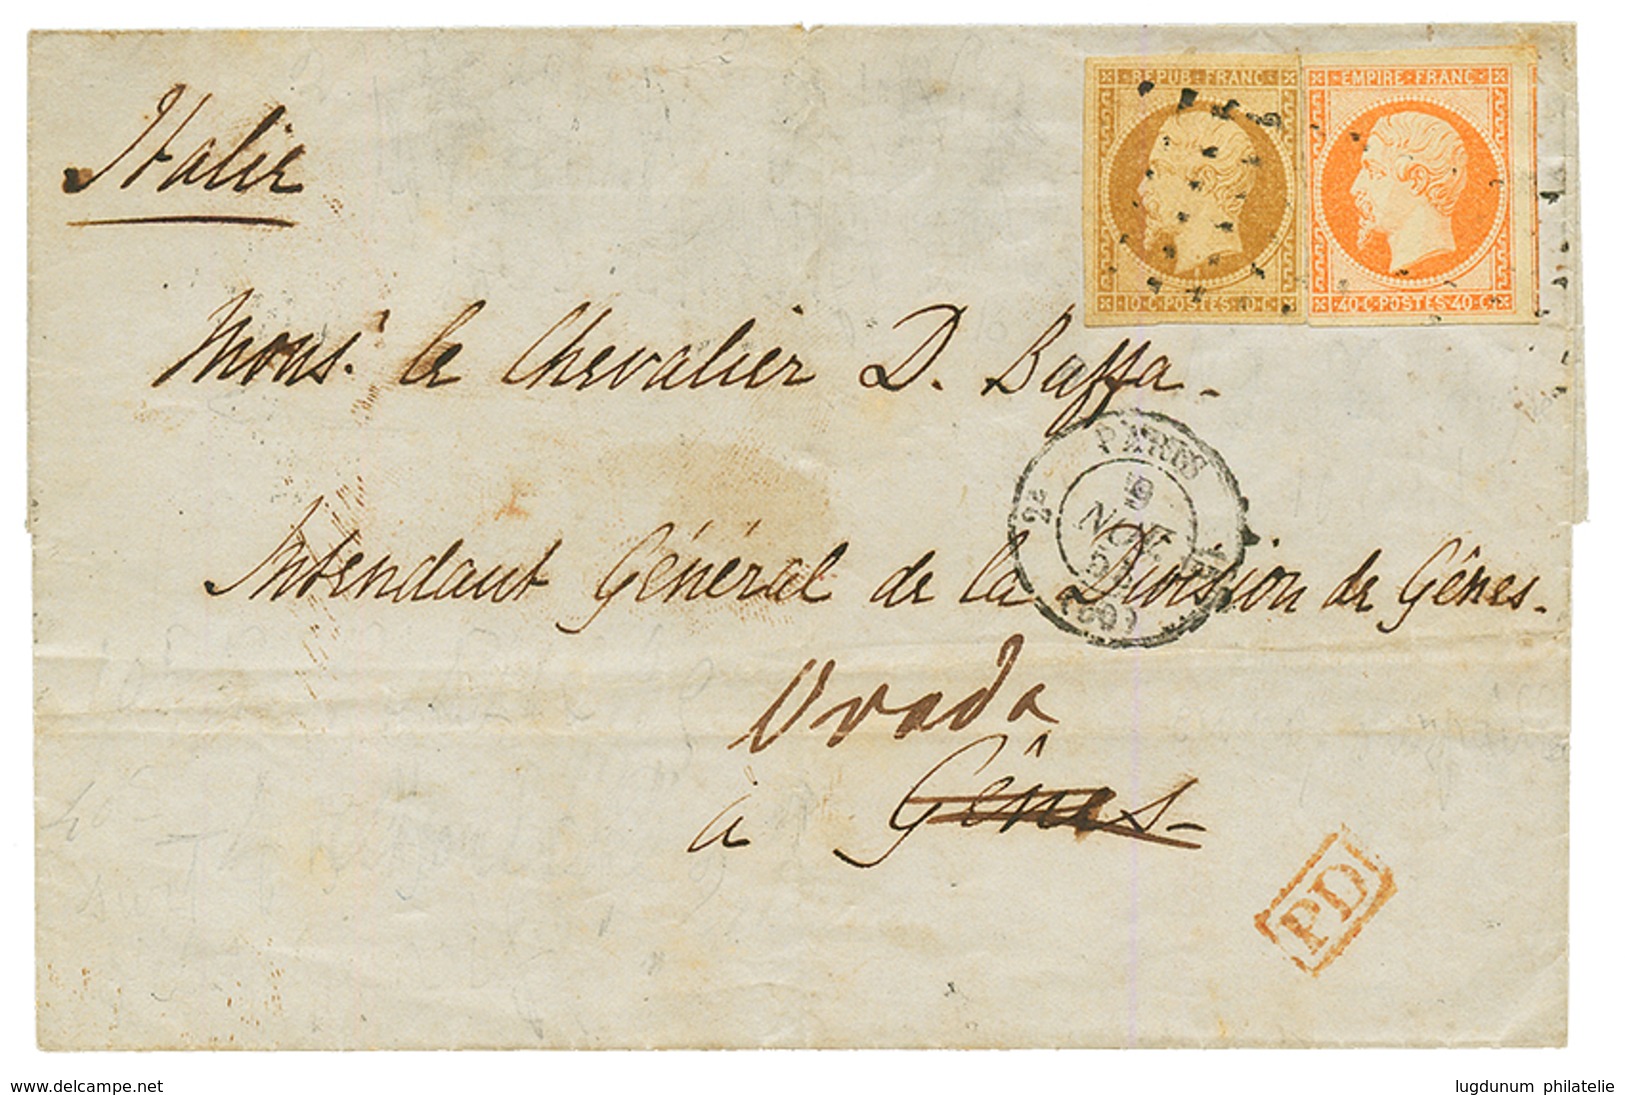 Italie
REPUB·FRANC
10·C·POSTES·10·C
EMPIRE·FRANC
40·C·POSTES·40·C
Mons.r le Chevalier D. Baffa -
PARIS
2e
9
NOV.
(60)
Intendant Général de la Division de Gênes -
Ovada
à Gênes -
PD
www.delcampe.net
lugdunum philatelie